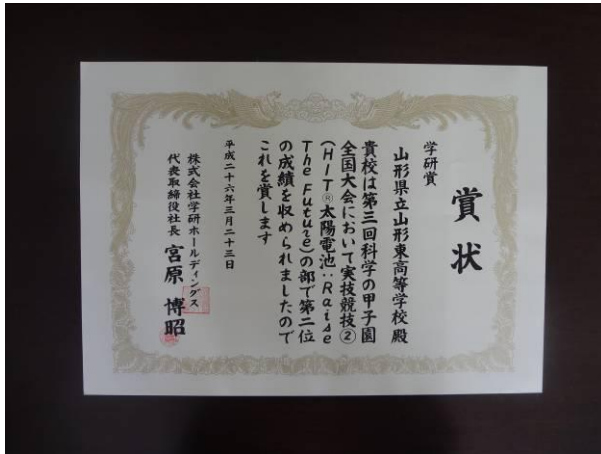 賞状
学研賞
山形県立山形東高等学校殿
貴校は第三回科学の甲子園
全国大会において実技競技②
(HIT®太陽電池::Raise
The Future)の部で第二位
の成績を収められましたので
これを賞します
平成二十六年三月二十三日
株式会社学研ホールディングス
代表取締役社長 宮原 博昭